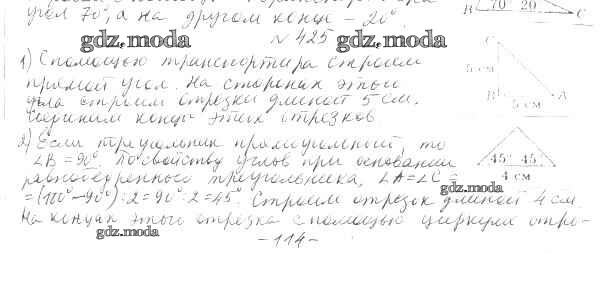 угол 70°, а на другом конце – 20°.
В 70° 20° С
№ 425
gdz.moda
gdz.moda
1) С помощью транспортира строим
прямой угол. На сторонах этого
угла строим отрезки длиной 5 см.
Соединим концы этих отрезков.
С
5 см
В
5 см
А
2) Если треугольник прямоугольный, то
∠B = 90°. По свойству углов при основании
равнобедренного треугольника, ∠A = ∠C =
= (180° – 90°) : 2 = 90° : 2 = 45°. Строим отрезок длиной 4 см.
На концах этого отрезка с помощью циркуля отро-
45° 45°
4 см
gdz.moda
gdz.moda
– 114 –